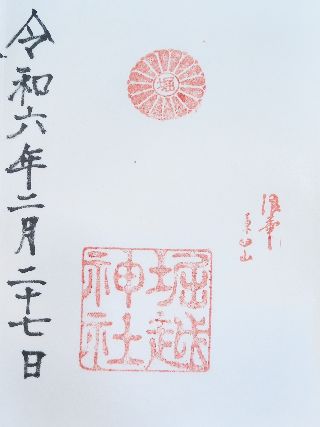 令和六年二月二十七日
堀越
神社